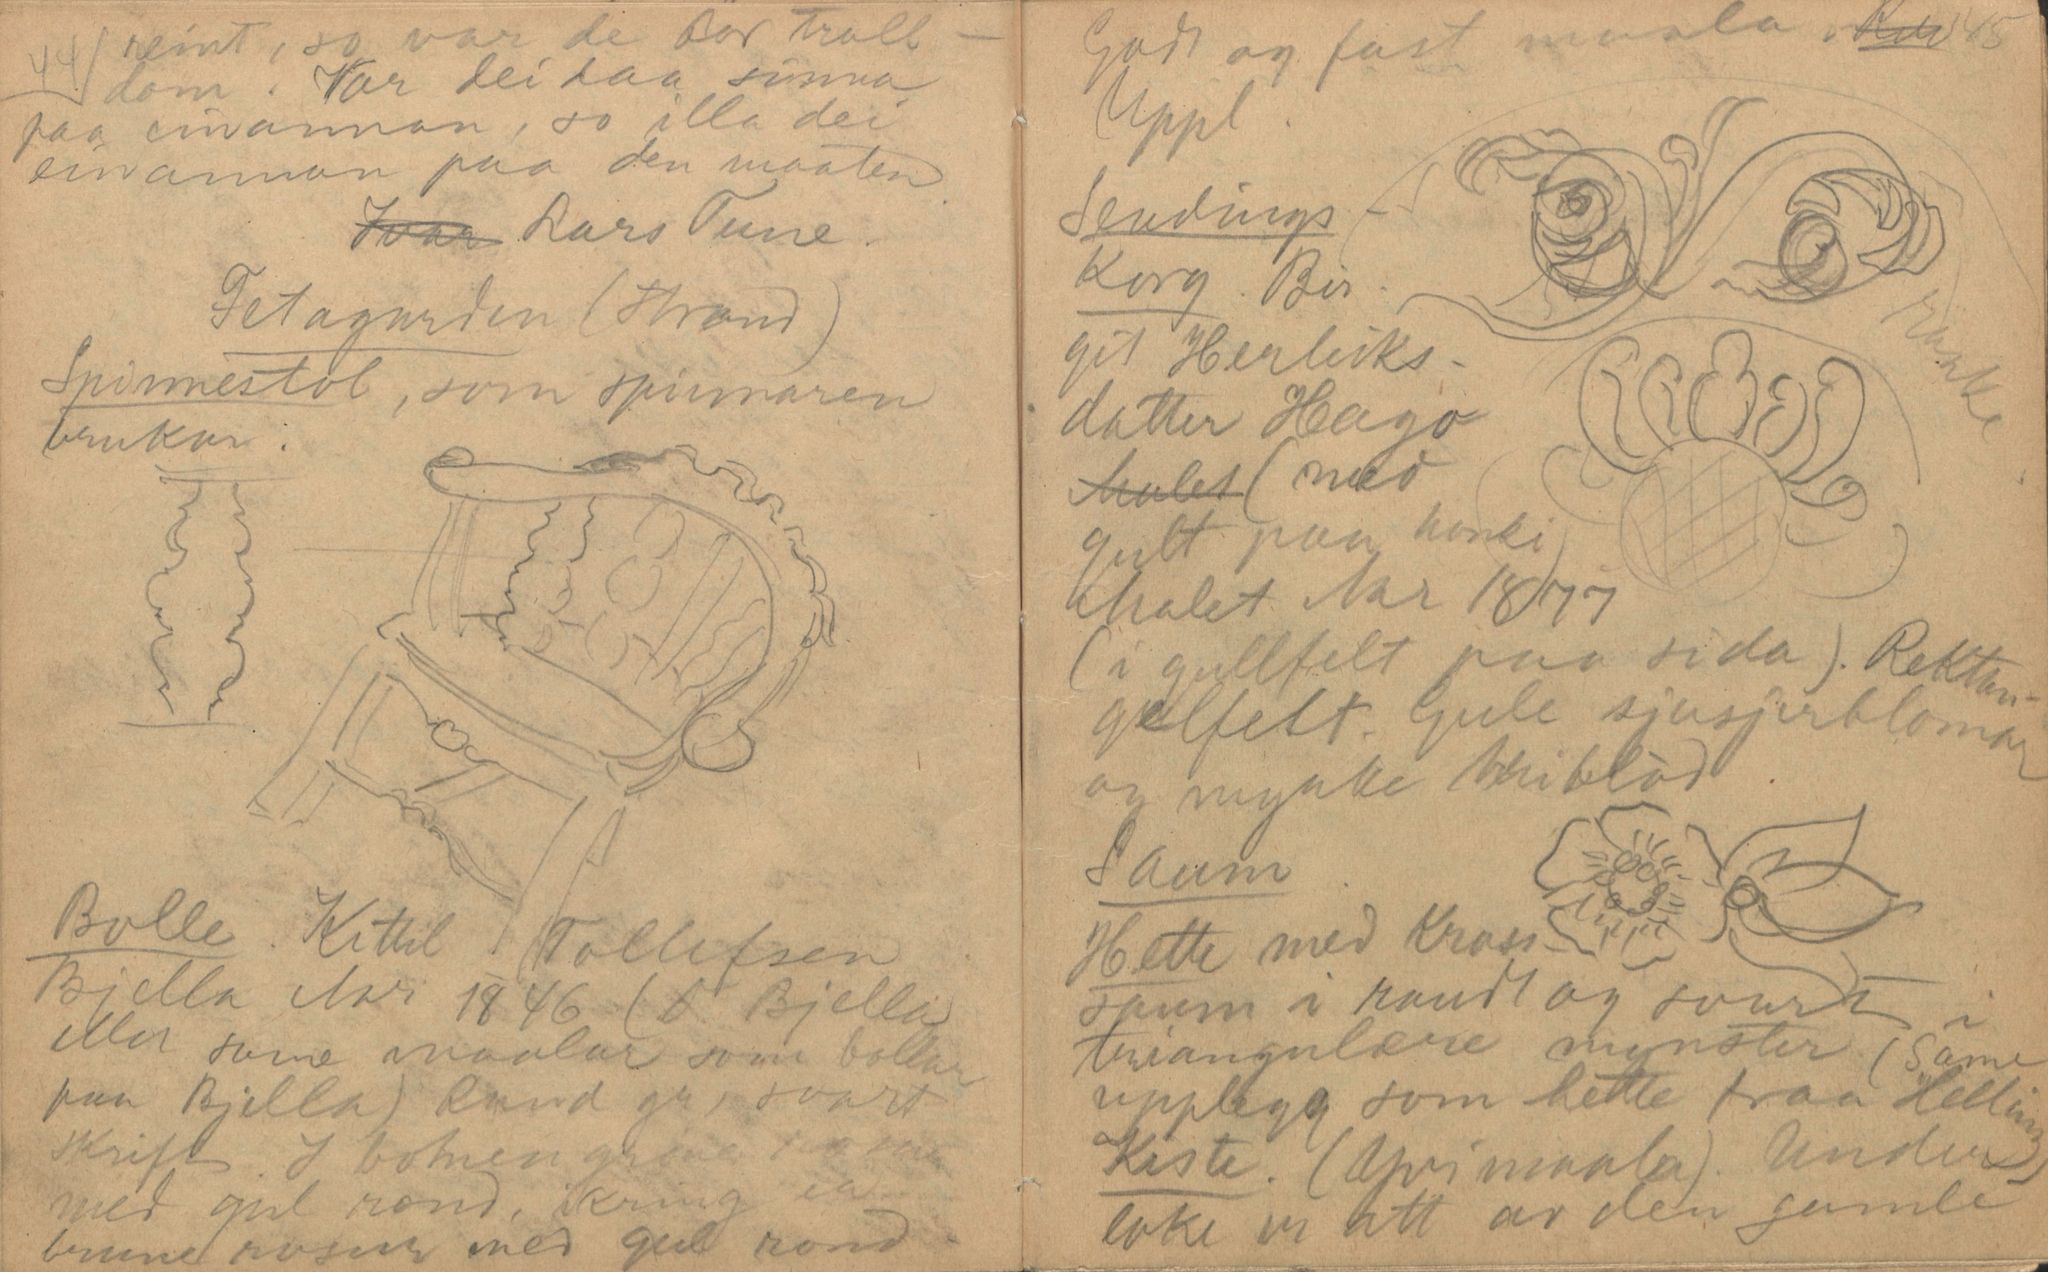 44/ reint, so var de bar troll-
dom. Var dei daa sinna
paa einannan, so illa dei
einannan paa den maaten
Ivar Lars Tune.
Fetagarden (Strand)
Spinnestol, som spinnaren
brukar.
Bolle. Kittil Tollefsen
Bjella Aar 1846 (Å Bjella
eller same maalar som bollar
paa Bjella) Raud gr, svart
skrift. I botnen grøne
med gul rand, ikring ei
brune rosur med gul rond.
Godt og fast maala 45
Uppl.
ranke
Sendings-
Korg. Bir-
git Herleiks-
datter Hago
Malet (med
gult paa hanki)
Malet Aar 1877
(i gullfelt paa sida). Rektan-
gelfelt. Gule sjusjerblomar
og mjuke triblod
Saum
Hette med Kross-
saum i raudt og svart i
triangulære mynster (Same
upplegg som hette fraa Helling)
Kiste. (Yvimaala). Under
loke er att av den gamle